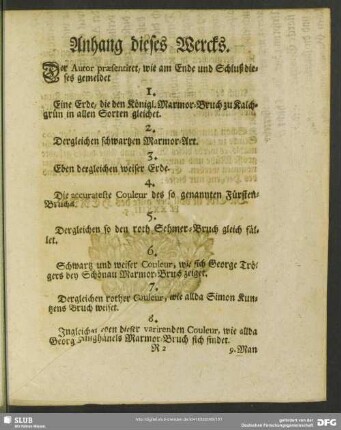 Anhang dieses Wercks.
Der Autor præsentiret, wie am Ende und Schluß die-
ses gemeldet
1.
Eine Erde, die den Königl. Marmor-Bruch zu Kalch-
grün in allen Sorten gleichet.
2.
Dergleichen schwartzen Marmor-Art.
3.
Eben dergleichen weiser Erde.
4.
Die accurateste Couleur des so genannten Fürsten-
Bruchs.
5.
Dergleichen so den roth Sehmer-Bruch gleich fäl-
let.
6.
Schwartz und weiser Couleur, wie sich George Trö-
gers bey Schönau Marmor-Bruch zeiget.
7.
Dergleichen rother Couleur, wie allda Simon Kun-
tzens Bruch weiset.
8.
Ingleichen eben dieser varirenden Couleur, wie allda
Georg Marmor-Bruch sich findet.
R 2
9. Man
SLUB
Wir führen Wissen.
gefördert von der
Deutschen Forschungsgemeinschaft
DFG